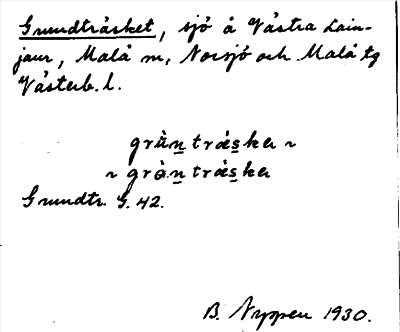 Grundträsket, sjö å Västra Lain-
jaur, Malå sn, Norsjö och Malå tg
Västerb. l.
grùn̲träs̲ka ~
~ gròn̲träs̲ka
Grundtr. G. 42.
B. Nyppen 1930.